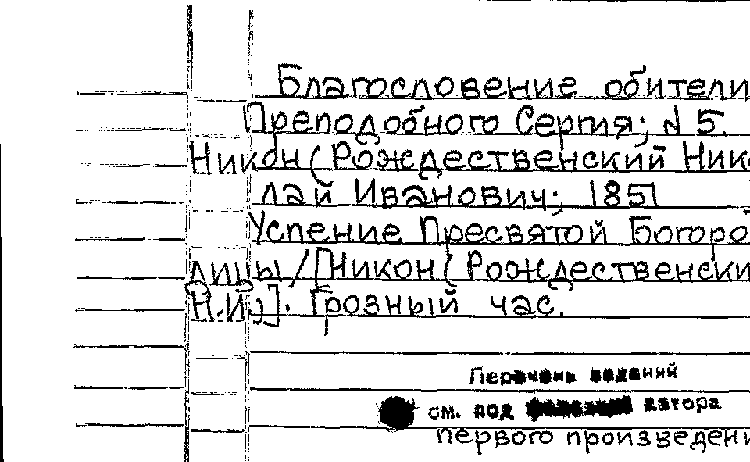 Благословение обители
Преподобного Сергия; d 5.
Никон (Рождественский Нико
лай Иванович; 1851
Успение Пресвятой Богоро
лицы / [Никон (Рождественски
Н.И.)]. Грозный час.
Перечень изданий
см. под автора
первого произведени